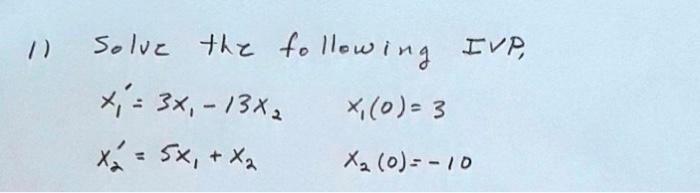 1) Solve the following IVP,
x₁' = 3x₁ - 13x₂ x₁(0) = 3
x₂' = 5x₁ + x₂ x₂(0) = -10